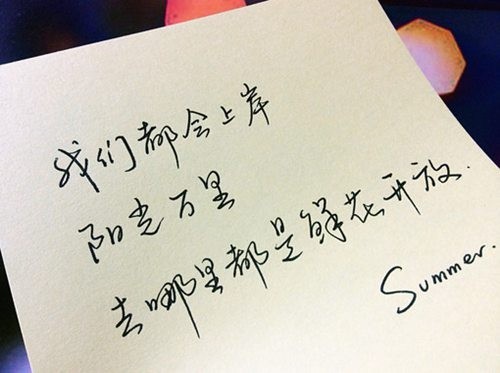 我们都会上岸
阳光万里
去哪里都是鲜花开放.
Summer.